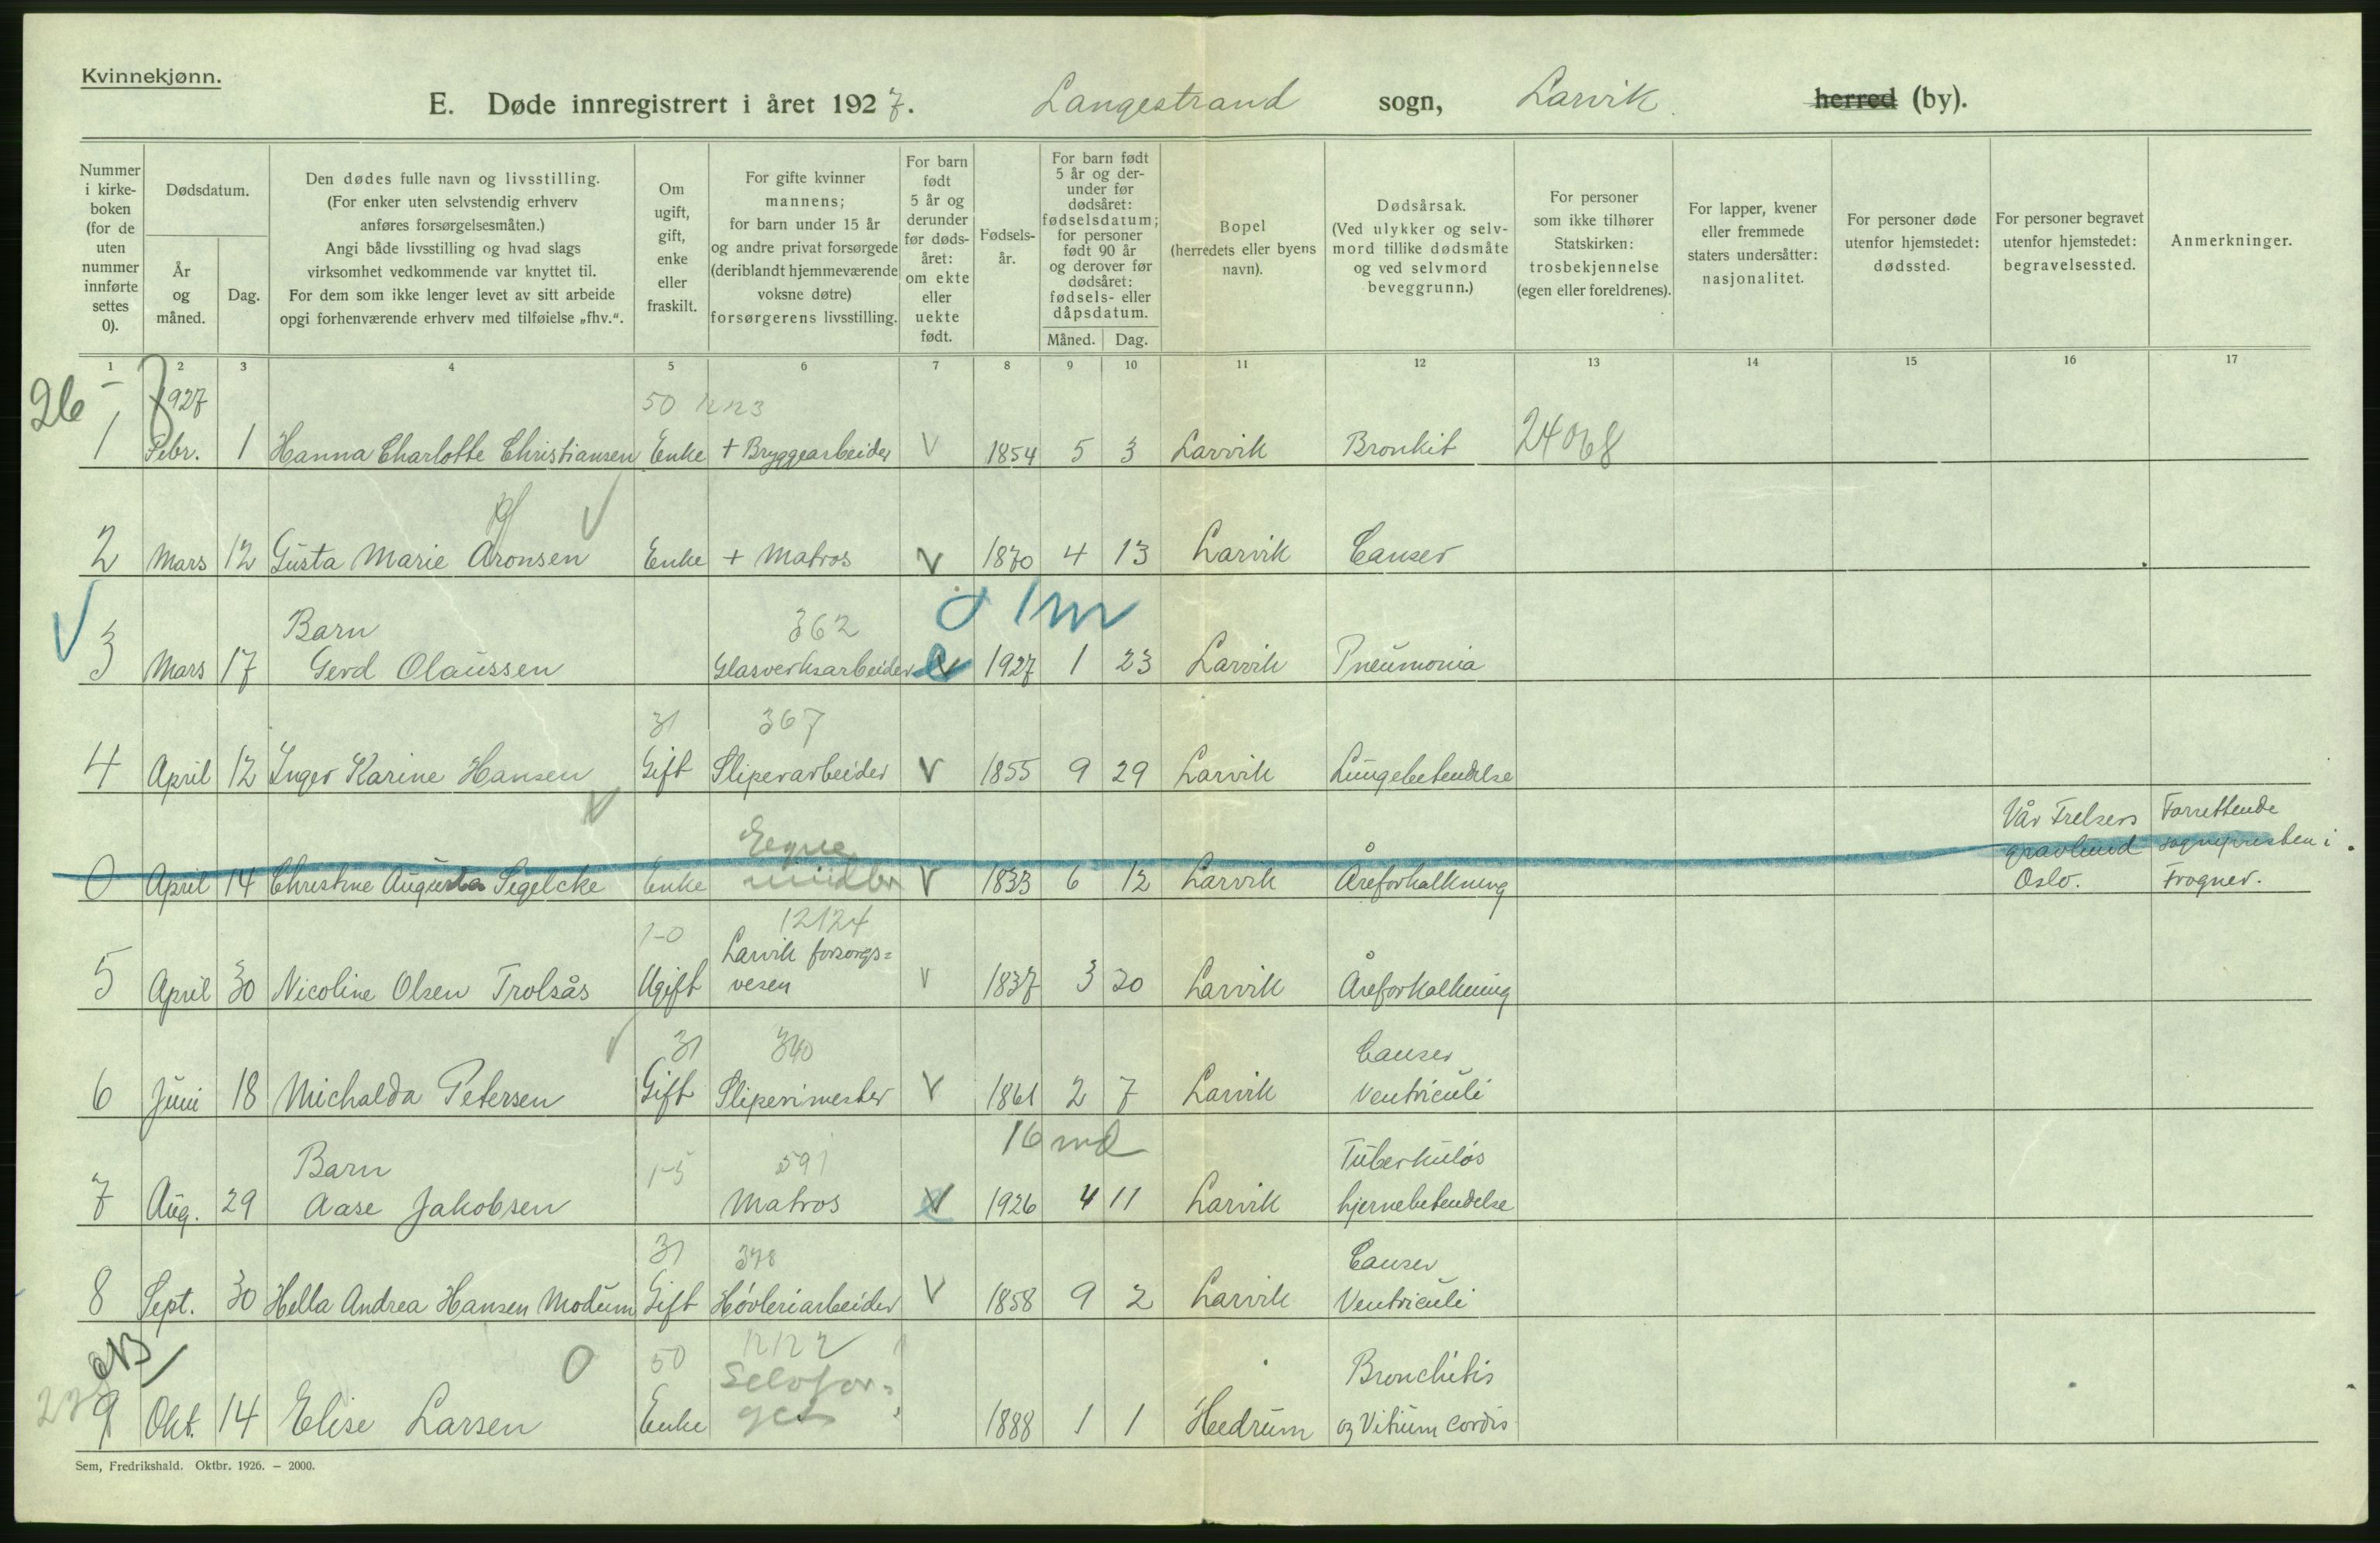 Kvinnekjønn.
E. Døde innregistrert i året 1927. Langestrand sogn, Larvik herred (by).
Nummer i kirke-boken (for de uten nummer innførte settes 0).
Dødsdatum.
År og måned.
Dag.
Den dødes fulle navn og livsstilling.
(For enker uten selvstendig erhverv
anføres forsørgelsesmåten.)
Angi både livsstilling og hvad slags
virksomhet vedkommende var knyttet til.
For dem som ikke lenger levet av sitt arbeide
opgi forhenværende erhverv med tilføielse „fhv.“.
Om ugift, gift, enke eller fraskilt.
For gifte kvinner
mannens;
for barn under 15 år
og andre privat forsørgede
(deriblandt hjemmeværende
voksne døtre)
forsørgerens livsstilling.
For barn født 5 år og derunder før døds-året: om ekte eller uekte født.
Fødsels-år.
For barn født
5 år og der-
under før
dødsåret:
fødselsdatum;
for personer
født 90 år
og derover før
dødsåret:
fødsels- eller
dåpsdatum.
Måned. Dag.
Bopel
(herredets eller byens
navn).
Dødsårsak.
(Ved ulykker og selv-
mord tillike dødsmåte
og ved selvmord
beveggrunn.)
For personer
som ikke tilhører
Statskirken:
trosbekjennelse
(egen eller foreldrenes).
For lapper, kvener
eller fremmede
staters undersåtter:
nasjonalitet.
For personer døde
utenfor hjemstedet:
dødssted.
For personer begravet
utenfor hjemstedet:
begravelsessted.
Anmerkninger.
1 2 3 4 5 6 7 8 9 10 11 12 13 14 15 16 17
26 1927 50 12123
1 Febr. 1 Hanna Charlotte Christiansen Enke + Bryggearbeider V 1854 5 3 Larvik Bronkit 24068
2 Mars 12 Gusta Marie Aronsen Enke + Matros V 1870 4 13 Larvik Canser
Barn 362 1m
3 Mars 17 Gerd Olaussen Glasverksarbeider 1927 1 23 Larvik Pneumonia
31 367
4 April 12 Inger Karine Hansen Gift Sliperarbeider V 1855 9 29 Larvik Lungebetendelse
Egne Vår Frelsers Forrettende
gravlund sognepresten i
0 April 14 Christine Augusta Sigelcke Enke midler V 1833 6 12 Larvik Åreforkalkning Oslo. Frogner.
1-0 12124
Larvik forsorgs=
5 April 30 Nicoline Olsen Trolsås Ugift vesen V 1837 3 20 Larvik Åreforkalkning
31 340 Canser
6 Juni 18 Michalda Petersen Gift Sliperimester V 1861 2 7 Larvik Ventriculi
Barn 1-5 591 16 md Tuberkuløs
7 Aug. 29 Aase Jakobsen Matros 1926 4 11 Larvik hjernebetendelse
31 348 Canser
8 Sept. 30 Hella Andrea Hansen Modum Gift Høvleriarbeider V 1858 9 2 Larvik Ventriculi
0 50 12122
Selvfor- Bronchitis
9 Okt. 14 Elise Larsen Enke 1888 1 1 Hedrum og Vitium cordis
Sem, Fredrikshald. Oktbr. 1926. – 2000.